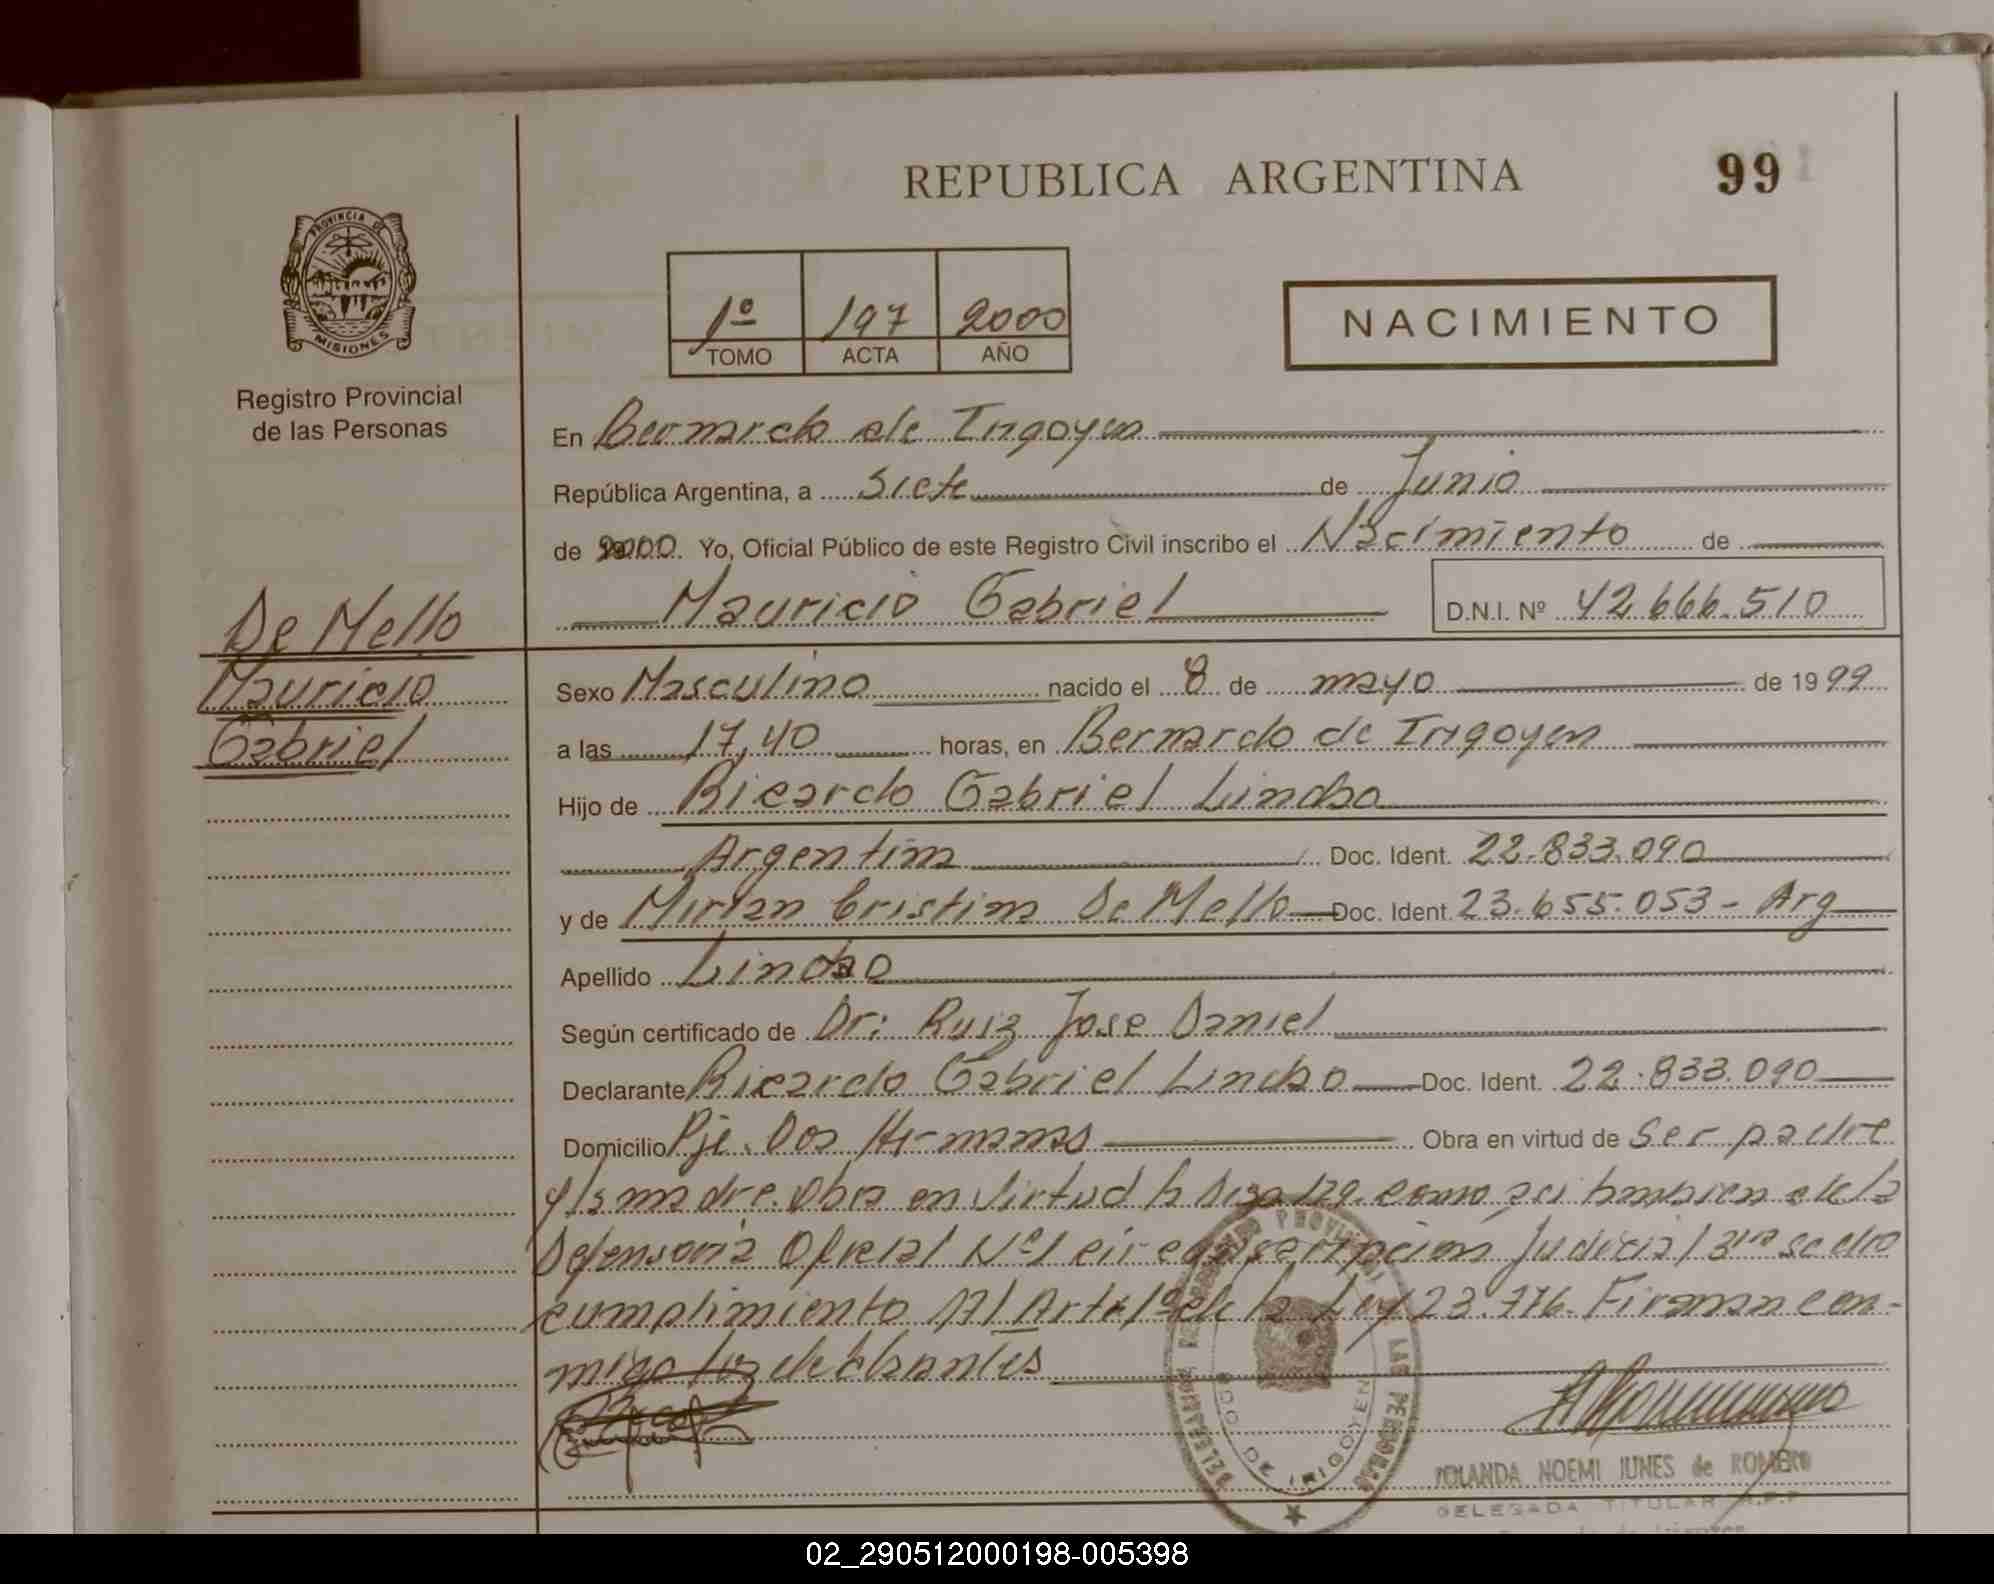 REPUBLICA ARGENTINA
99
PROVINCIA DE
MISIONES
Registro Provincial
de las Personas
1º 197 2000
TOMO ACTA AÑO
NACIMIENTO
En Bernardo de Irigoyen
República Argentina, a Siete de Junio
de 2000. Yo, Oficial Público de este Registro Civil inscribo el Nacimiento de
Mauricio Gabriel D.N.I. Nº 42.666.510
De Mello
Mauricio
Gabriel
Sexo Masculino nacido el 8 de mayo de 1999
a las 17,40 horas, en Bernardo de Irigoyen
Hijo de Ricardo Gabriel
Argentina Doc. Ident. 22.833.090
y de Mirian Cristina De Mello Doc. Ident. 23.655.053 - Arg
Apellido
Según certificado de Dr: Ruiz Jose Daniel
Declarante Ricardo Gabriel Doc. Ident. 22.833.090
Domicilio Pje. Dos Hermanas Obra en virtud de Ser padre
y la madre. Obra en Virtud la de la
Defensoria Oficial Nº1 circunscripción Judicial 3ra se dio
cumplimiento Al Art. 1º de la Ley 23.776. Firman con-
migo los declarantes
DELEGACION REGISTRO PROVINCIAL DE LAS PERSONAS
BDO DE IRIGOYEN
YOLANDA NOEMI IUNES de ROMERO
DELEGADA TITULAR R.P.P
02_290512000198-005398